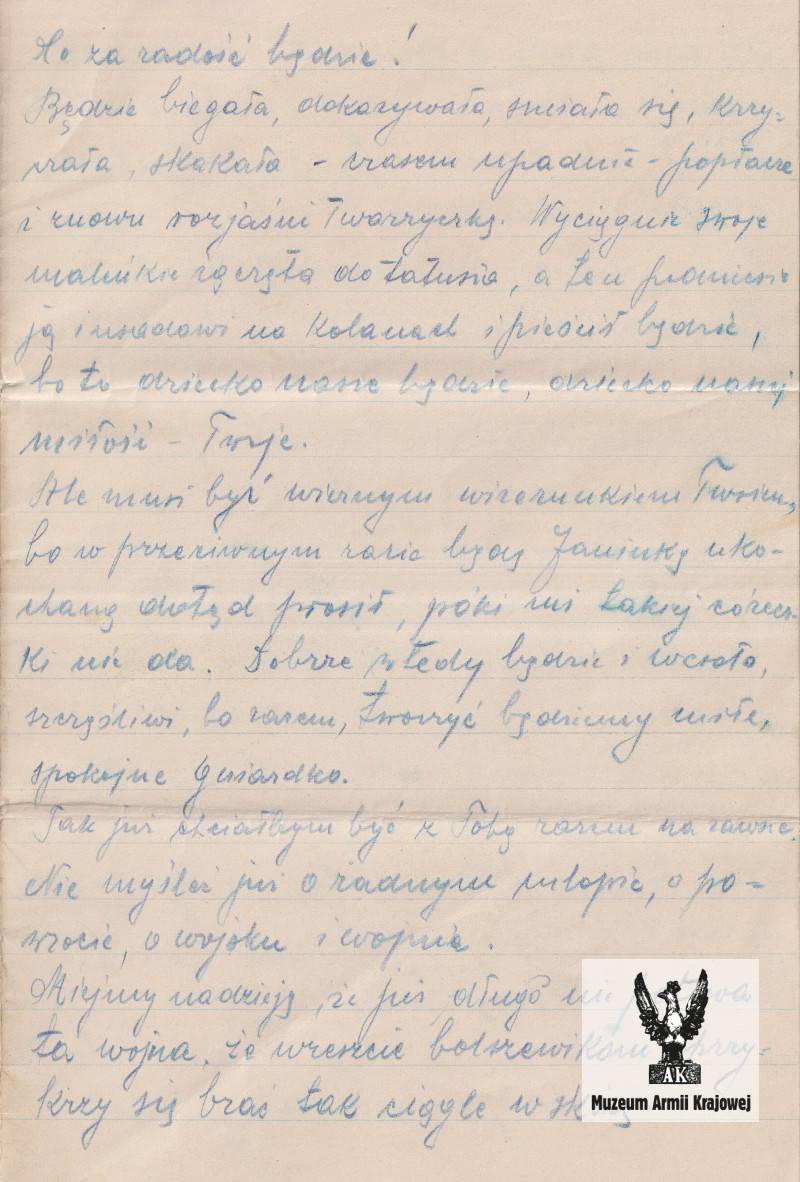 Ale za radość będzie!
Będzie biegała, dokazywała, śmiała się, krzy=
czała, skakała – czasem upadnie – popłacze
i znowu rozjaśni twarzyczkę. Wyciągnie swoje
maleńkie rączęta do tatusia, a ten podniesie
ją i usadowi na kolanach i pieścił będzie,
bo to dziecko nasze będzie, dziecko naszej
miłości – Twoje.
Ale musi być wiernym wizerunkiem Twoim,
bo w przeciwnym razie będę Janinkę uko-
chaną dotąd prosił, póki mi takiej córecz-
ki nie da. Dobrze wtedy będzie i wesoło,
szczęśliwi, bo razem, tworzyć będziemy miłe,
spokojne gniazdko.
Tak już chciałbym być z Tobą razem na zawsze.
Nie myśleć już o żadnym urlopie, o po=
wrocie, o wojsku i wojnie.
Miejmy nadzieję, że już długo nie
ta wojna, że wreszcie bolszewikom przy-
krzy się brać tak ciągle w skórę
AK
Muzeum Armii Krajowej